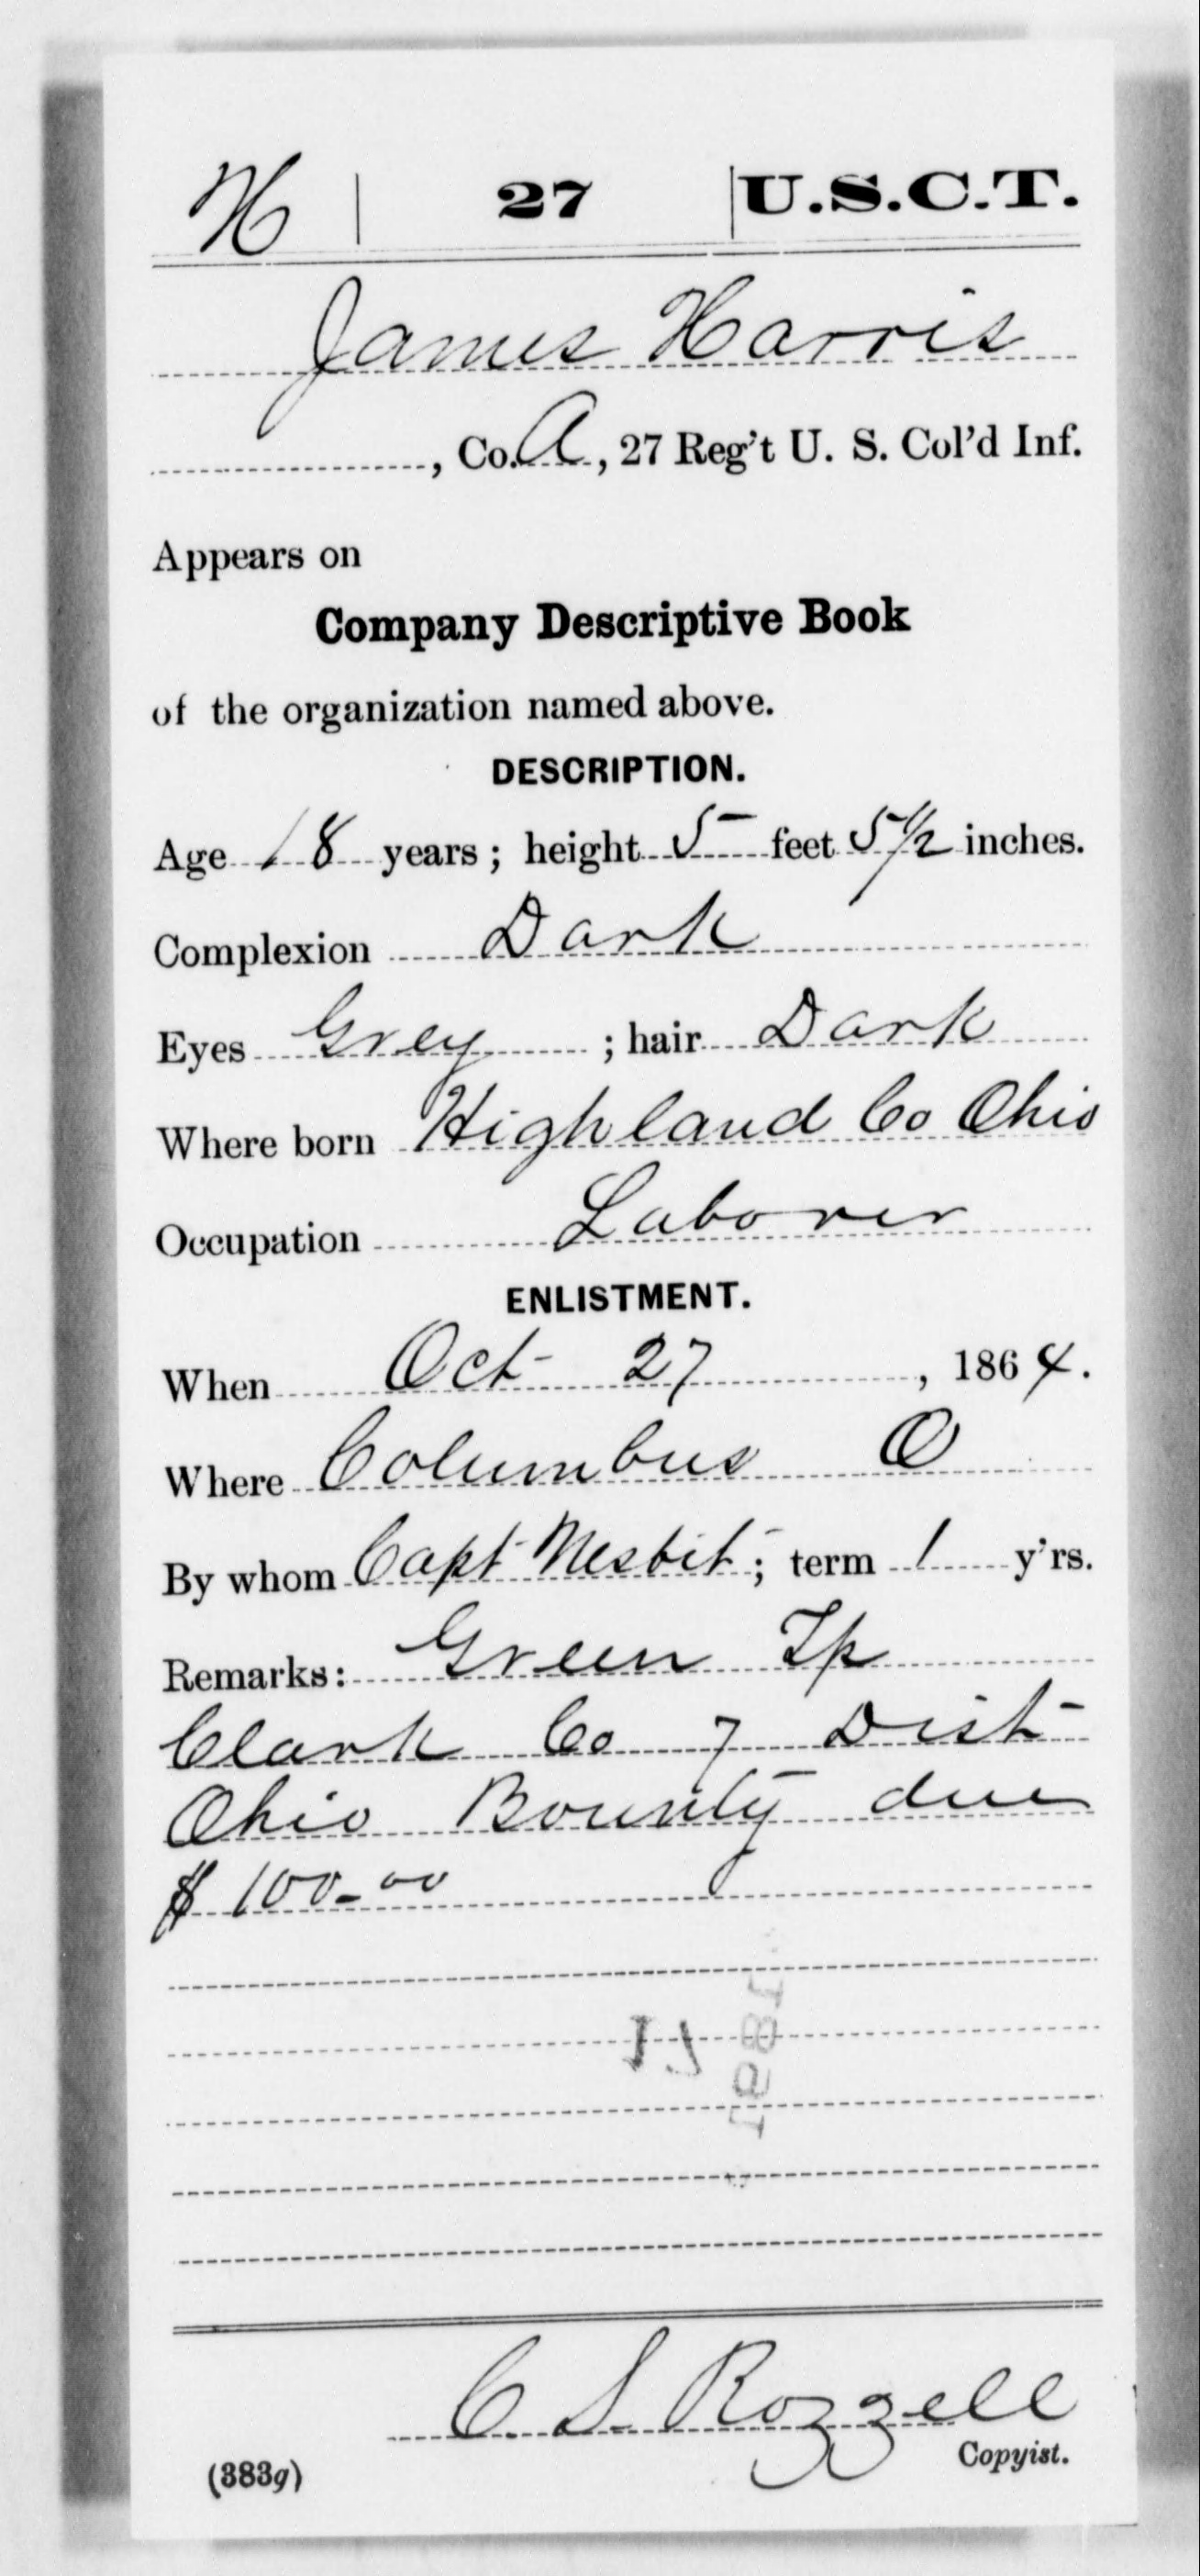 H | 27 | U.S.C.T.
James Harris
, Co. A, 27 Reg't U. S. Col'd Inf.
Appears on
Company Descriptive Book
of the organization named above.
DESCRIPTION.
Age 18 years; height 5 feet 5½ inches.
Complexion Dark
Eyes Grey; hair Dark
Where born Highland Co Ohio
Occupation Laborer
ENLISTMENT.
When Oct 27, 1864.
Where Columbus O
By whom Capt Nesbit; term 1 y'rs.
Remarks: Green Tp
Clark Co 7 Dist
Ohio Bounty due
$ 100.00
1881
C. S. Rozzell
Copyist.
(383g)